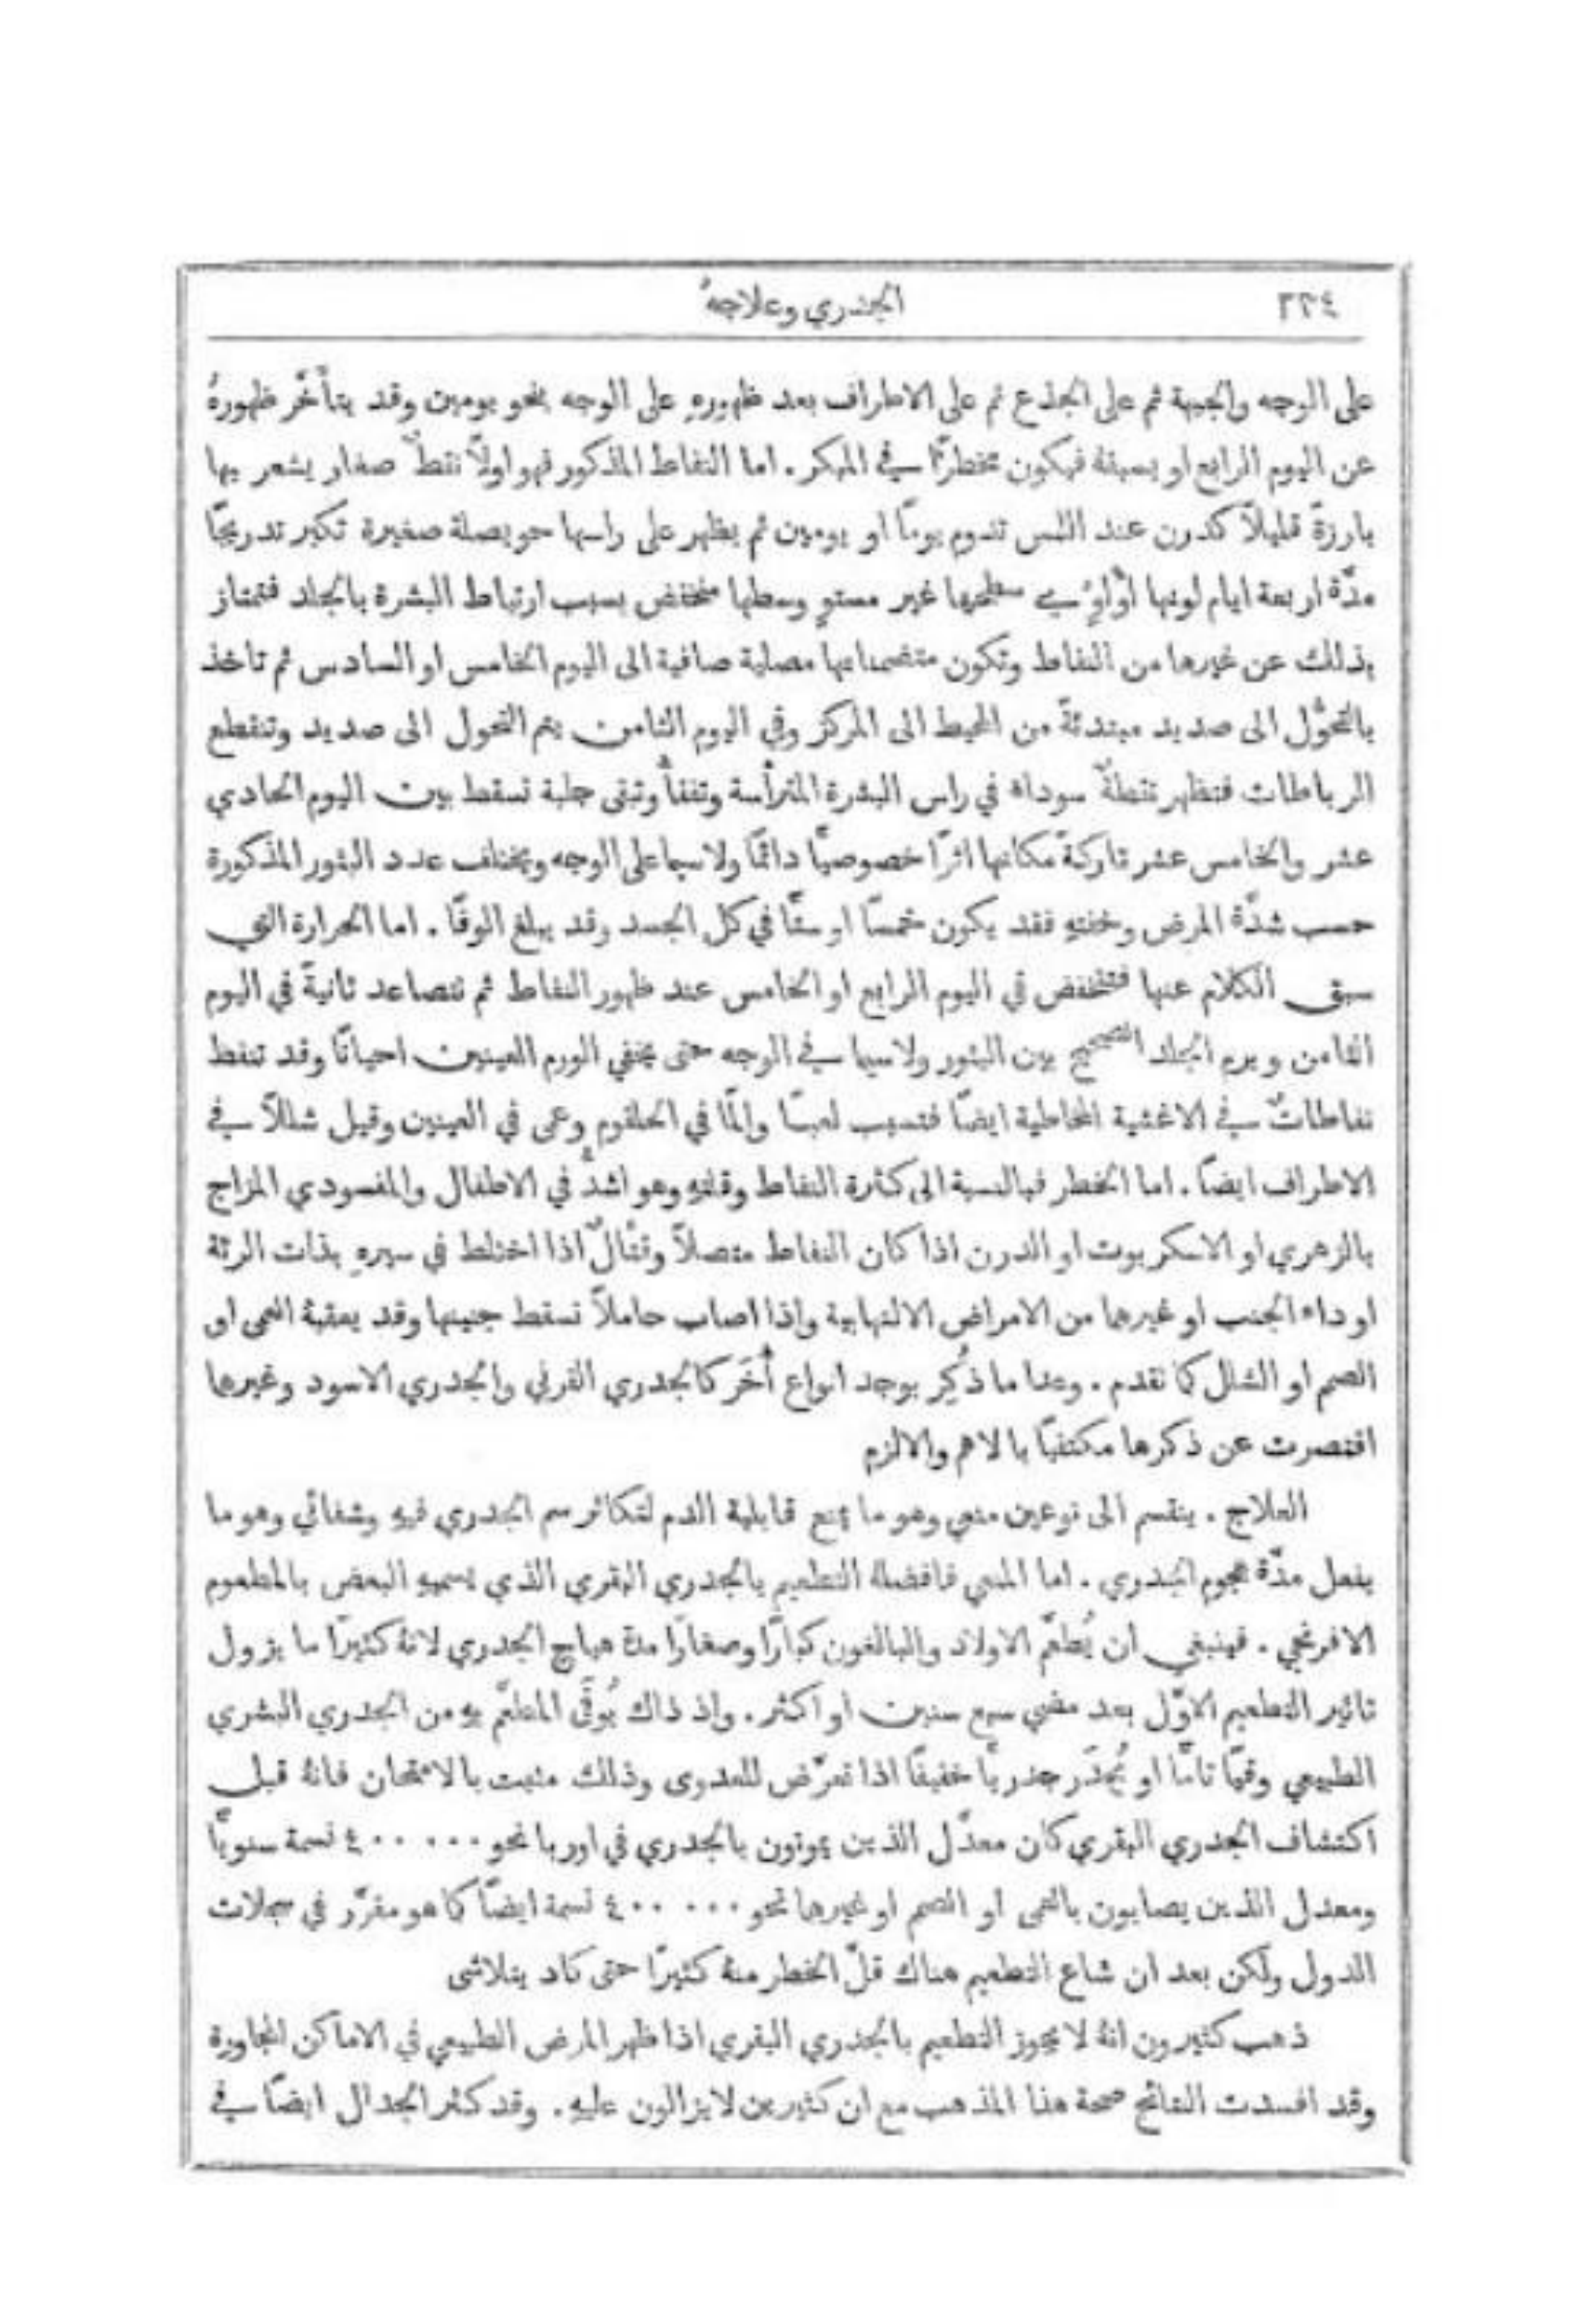 ٢٣٤ الجدري وعلاجهُ
على الوجه والجبهة ثم على الجذع ثم على الاطراف بعد ظهورهِ على الوجه بنحو يومين وقد يتأَخَّر ظهورهُ
عن اليوم الرابع او يسبقهُ فيكون مخطرًا في المبكر. اما النفاط المذكور فهو اولًا نقطٌ صغار يشعر بها
بارزةً قليلًا كدرن عند اللمس تدوم يومًا او يومين ثم يظهر على راسها حويصلة صغيرة تكبر تدريجًا
مدَّة اربعة ايام لونها لؤلؤي سطحها غير مستوٍ وسطها منخفض بسبب ارتباط البشرة بالجلد فتمتاز
بذلك عن غيرها من النفاط وتكون متضمناتها مصلية صافية الى اليوم الخامس او السادس ثم تاخذ
بالتحوُّل الى صديد مبتدئةً من المحيط الى المركز وفي اليوم الثامن يتم التحول الى صديد وتنقطع
الرباطات فتظهر نقطةٌ سوداء في راس البثرة المترأسة وتفقأُ وتبقى جلبة تسقط بين اليوم الحادي
عشر والخامس عشر تاركةً مكانها اثرًا خصوصيًّا دائمًا ولاسيما على الوجه ويختلف عدد البثور المذكورة
حسب شدَّة المرض وخفتهِ فقد يكون خمسًا او ستًّا في كل الجسد وقد يبلغ الوفًا. اما الحرارة التي
سبق الكلام عنها فتنخفض في اليوم الرابع او الخامس عند ظهور النفاط ثم تتصاعد ثانيةً في اليوم
الثامن ويرم الجلد الصحيح بين البثور ولاسيما في الوجه حتى يخفي الورم العينين احيانًا وقد تنفط
نفاطاتٌ في الاغشية المخاطية ايضًا فتسبب لعبًا والمًا في الحلقوم وعمى في العينين وقيل شللًا في
الاطراف ايضًا. اما الخطر فبالنسبة الى كثرة النفاط وقلتهِ وهو اشدُّ في الاطفال والمفسودي المزاج
بالزهري او الاسكربوت او الدرن اذا كان النفاط متصلًا وقتَّالٌ اذا اختلط في سيرهِ بذات الرئة
او داء الجنب او غيرها من الامراض الالتهابية واذا اصاب حاملًا تسقط جنينها وقد يعقبهُ العمى او
الصمم او الشلل كما تقدم. وعدا ما ذُكِر يوجد انواع أُخَر كالجدري القرني والجدري الاسود وغيرها
اقتصرت عن ذكرها مكتفيًا بالاهم والالزم
العلاج. ينقسم الى نوعين منعي وهو ما يمنع قابلية الدم لتكاثر سم الجدري فيهِ وشفائي وهو ما
يفعل مدَّة هجوم الجدري. اما المنعي فافضلهُ التطعيم بالجدري البقري الذي يسميهِ البعض بالمطعوم
الافرنجي. فينبغي ان يُطعَّم الاولاد والبالغون كبارًا وصغارًا مدة هياج الجدري لانهُ كثيرًا ما يزول
تاثير التطعيم الاوَّل بعد مضي سبع سنين او اكثر. واذ ذاك يُوقَى المطعَّم بهِ من الجدري البشري
الطبيعي وقيًا تامًّا او يُجدَّر جدريًا خفيفًا اذا تعرَّض للعدوى وذلك مثبت بالامتحان فانهُ قبل
اكتشاف الجدري البقري كان معدَّل الذين يموتون بالجدري في اوربا نحو ٤٠٠٠٠٠ نسمة سنويًّا
ومعدل الذين يصابون بالعمى او الصمم او غيرها نحو ٤٠٠٠٠٠ نسمة ايضًا كما هو مقرَّر في سجلات
الدول ولكن بعد ان شاع التطعيم هناك قلَّ الخطر منهُ كثيرًا حتى كاد يتلاشى
ذهب كثيرون انهُ لا يجوز التطعيم بالجدري البقري اذا ظهر المرض الطبيعي في الاماكن المجاورة
وقد افسدت النتائج صحة هذا المذهب مع ان كثيرين لا يزالون عليهِ. وقد كثر الجدال ايضًا في